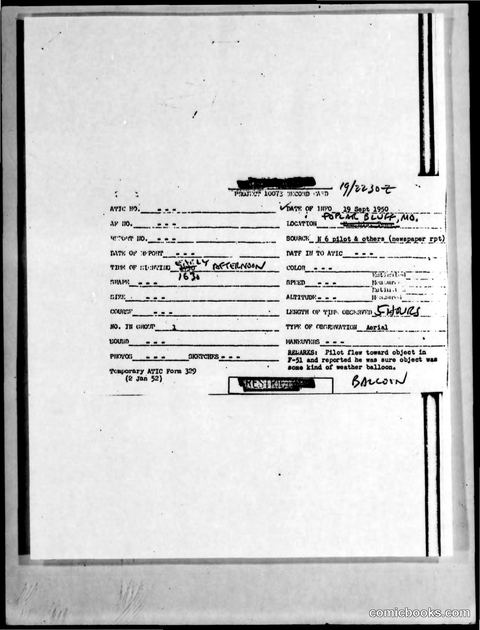 PROJECT 10073 RECORD CARD 19/2230Z
ATIC NO. - - - ✓DATE OF INFO 19 Sept 1950
AF NO. - - - LOCATION POPLAR BLUFF, MO.
REPORT NO. - - - SOURCE N 6 pilot & others (newspaper rpt)
DATE OF REPORT - - - DATE IN TO ATIC - - -
TIME OF SIGHTING EARLY AFTERNOON COLOR - - -
1630
SHAPE - - - SPEED - - -
SIZE - - - ALTITUDE - - -
COURSE - - - LENGTH OF TIME OBSERVED 5 HOURS
NO. IN GROUP 1 TYPE OF OBSERVATION Aerial
SOUND - - - MANEUVERS - - -
PHOTOS - - - SKETCHES - - - REMARKS: Pilot flew toward object in
F-51 and reported he was sure object was
some kind of weather balloon.
Temporary ATIC Form 329
(2 Jan 52)
RESTRICTED BALLOON
comicbooks.com